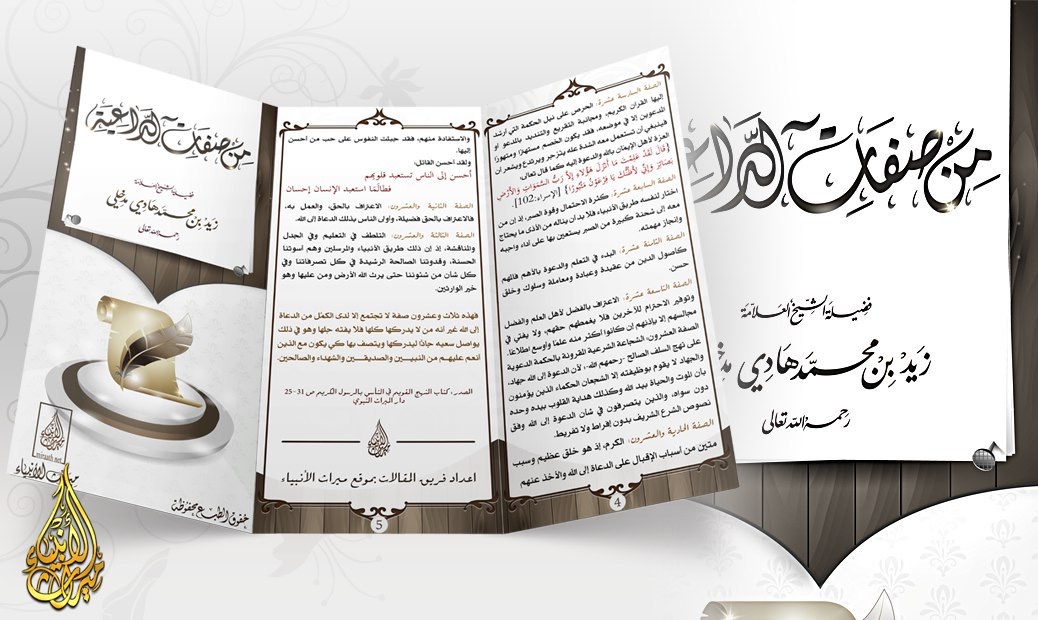 من صفات الداعية
فضيلة الشيخ العلامة
زيد بن محمد هادي
رحمه الله تعالى
الصفة السادسة عشرة: الحرص على نيل الحكمة التي أرشد
إليها القرآن الكريم، ومجانبة التقريع والتنديد بالمدعو أو
المدعوين إلا في موضعه، فقد يكون الخصم مستهتراً ومتهوراً
فينبغي أن تستعمل معه الشدة عله ينزجر ويرتدع ويشعر أن
العزة لأهل الإيمان بالله والدعوة إليه كما قال تعالى:
{قَالَ لَقَدْ عَلِمْتَ مَا أَنْزَلَ هَؤُلَاءِ إِلَّا رَبُّ السَّمَوَاتِ وَالأَرْضِ
بَصَائِرَ وَإِنِّي لَأَظُنُّكَ يَا فِرْعَوْنُ مَثْبُورًا} [الإسراء:102].
الصفة السابعة عشرة: كثرة الاحتمال وقوة الصبر، إذ إن من
اختار لنفسه طريق الأنبياء فلا بد أن يناله من الأذى ما يحتاج
معه إلى شحنة كبيرة من الصبر يستعين بها على أداء واجبه
وإنجاز مهمته.
الصفة الثامنة عشرة: البدء في التعلم والدعوة بالأهم فالمهم
كأصول الدين من عقيدة وعبادة ومعاملة وسلوك وخلق
حسن.
الصفة التاسعة عشرة: الاعتراف بالفضل لأهل العلم والفضل
وتوفير الاحترام للآخرين فلا يغمطهم حقهم، ولا يفتي في
مجالسهم إلا بإذنهم إن كانوا أكثر منه علما وأوسع اطلاعًا.
الصفة العشرون: الشجاعة الشرعية المقرونة بالحكمة الدعوية
على نهج السلف الصالح -رحمهم الله-، لأن الدعوة إلى الله جهاد،
والجهاد لا يقوم بوظيفته إلا الشجعان الحكماء الذين يؤمنون
بأن الموت والحياة بيد الله وكذلك هداية القلوب بيده وحده
دون سواه، والذين يتصرفون في شأن الدعوة إلى الله وفق
نصوص الشرع الشريف بدون إفراط ولا تفريط.
الصفة الحادية والعشرون: الكرم، إذ هو خلق عظيم وسبب
متين من أسباب الإقبال على الدعاة إلى الله والأخذ عنهم
4
والاستفادة منهم، فقد جبلت النفوس على حب من أحسن
إليها.
ولقد أحسن القائل:
أحسن إلى الناس تستعبد قلوبهم
فطالما استعبد الإنسان إحسان
الصفة الثانية والعشرون: الاعتراف بالحق، والعمل به،
فالاعتراف بالحق فضيلة، وأولى الناس بذلك الدعاة إلى الله.
الصفة الثالثة والعشرون: التلطف في التعليم وفي الجدل
والمناقشة، إذ إن ذلك طريق الأنبياء والمرسلين وهم أسوتنا
الحسنة، وقدوتنا الصالحة الرشيدة في كل تصرفاتنا وفي
كل شأن من شئوننا حتى يرث الله الأرض ومن عليها وهو
خير الوارثين.
فهذه ثلاث وعشرون صفة لا تجتمع إلا لدى الكمل من الدعاة
إلى الله غير أنه من لا يدركها كلها فلا يفته جلها وهو في ذلك
يواصل سعيه جادًا ليدركها ويتصف بها كي يكون مع الذين
أنعم عليهم من النبيين والصديقين والشهداء والصالحين.
الصدر: كتاب النهج القويم في التأسي بالرسول الكريم ص 31-25
دار الميراث النبوي
اعداد فريق المقالات بموقع ميراث الأنبياء
5
من صفات الداعية
فضيلة الشيخ العلامة
زيد بن محمد هادي مدخلي
رحمه الله تعالى
miraath.net
ميراث الأنبياء
حقوق الطبع محفوظة
ميراث الأنبياء